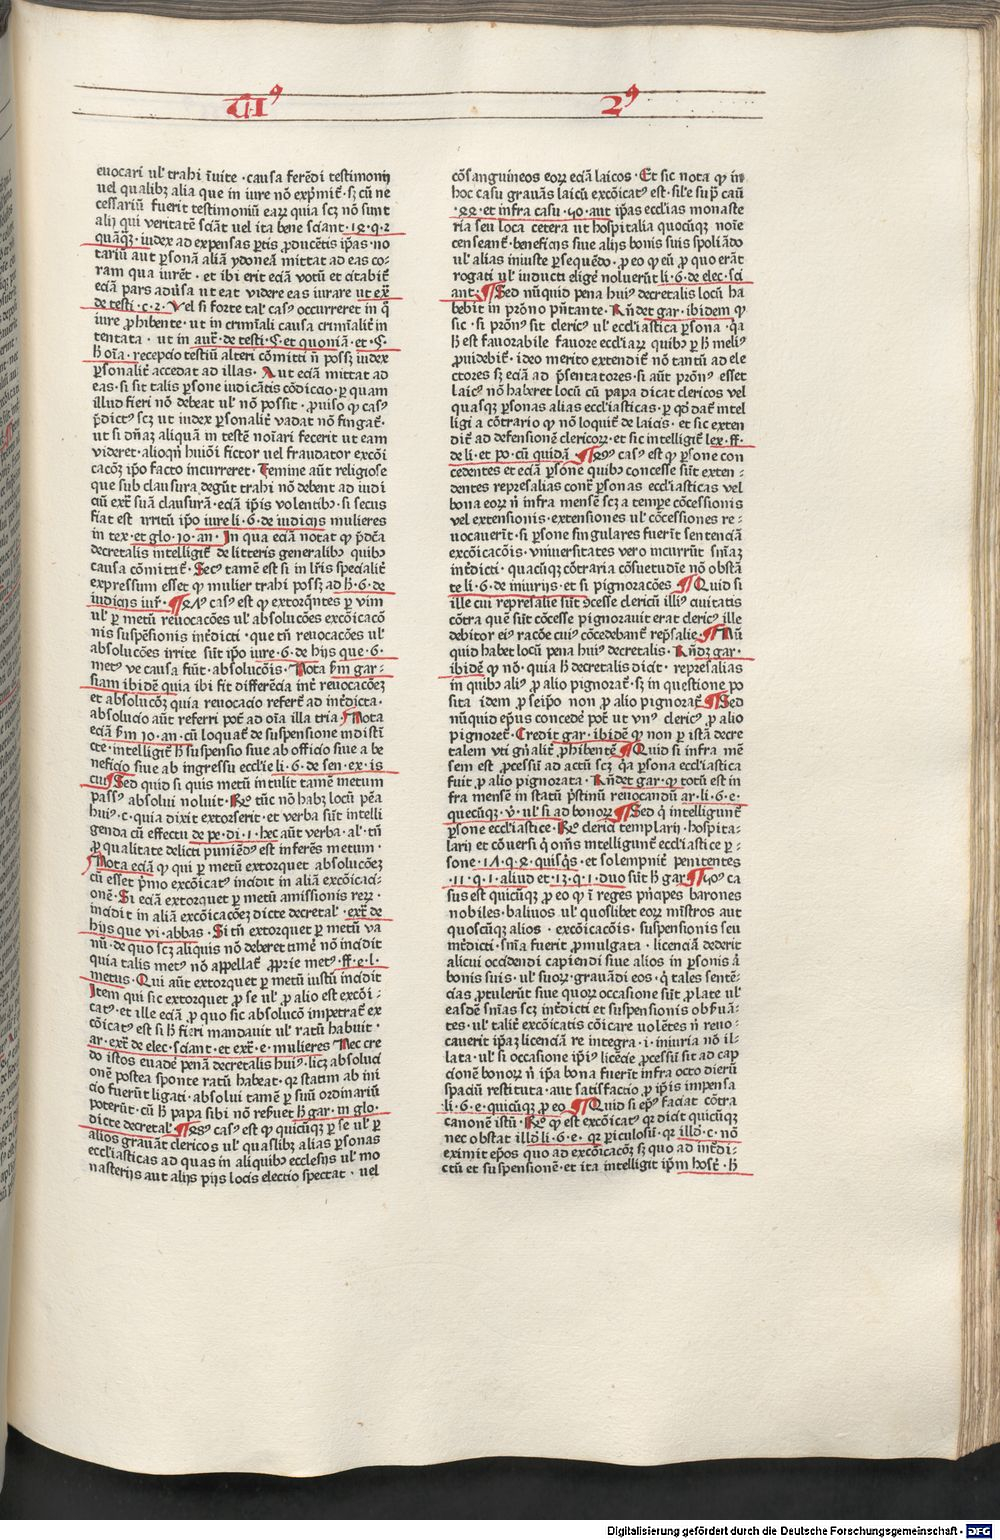 euocari ul' trahi ĩuite · causa ferẽdi testimonij
uel qualibꝫ alia que in iure nõ exp̃mit᷑ · sꝫ cũ ne
cessariũ fuerit testimoniũ earꝝ quia scꝫ nõ sunt
alij qui veritatẽ sciãt vel ita bene sciant · 12 · q · 2
quãqꝫ · iudex ad expensas ꝑtis ꝓducẽtis ip̃as · no
tariũ aut ꝑsonã aliã ydoneã mittat ad eas co-
ram qua iurẽt · et ibi erit eciã votũ et citabit᷑
eciã pars adũsa ut eat videre eas iurare ut ex̃
de testi · c · 2 · Vel si forte tal' casꝰ occurreret in q̃
iure ꝓhibente · ut in crim̃ali causa crim̃alit᷑ in
tentata · ut in aut᷑ · de testi · § · et quoniã · et · §
h̃ oĩa · recepcio testiũ alteri cõmitti ñ possꝫ iudex
ꝑsonalit᷑ accedat ad illas · Aut eciã mittat ad
eas · si sit talis ꝑsone iudicãtis cõdiccio · ꝑ quam
illud fieri nõ debeat ul' nõ possit · ꝓuiso ꝙ casꝰ
p̃dictꝰ scꝫ ut iudex ꝑsonalit᷑ vadat nõ fingat᷑ ·
ut si dñaꝫ aliquã in testẽ noĩari fecerit ut eam
videret · alioqñ huiõi fictor uel fraudator excõi
cacõꝫ ip̃o facto incurreret · Femine aũt religiose
que sub clausura degũt trahi nõ debent ad iudi
ciũ ext᷑ suã clausurã · eciã ip̃is volentibꝫ · si secus
fiat est irritũ ip̃o iure li · 6 · de iudicijs mulieres
in tex · et glo · io · an · In qua eciã notat ꝙ p̃dc̃a
decretalis intelligit᷑ de litteris generalibꝫ quibꝫ
causa cõmittit᷑ · Secꝰ tamẽ est si in lr̃is specialit᷑
expressum esset ꝙ mulier trahi possꝫ ad h̃ · 6 · de
iudicijs iur̃ · ¶ 27ꝰ casꝰ est ꝙ extorq̃ntes ꝑ vim
ul' ꝑ metũ reuocacões ul' absolucões excõicacõ
nis suspẽsionis int᷑dicti · que tñ reuocacões ul'
absolucões irrite sũt ip̃o iure · 6 · de hijs que · 6 ·
metꝰ ve causa fiũt · absolucõis · Nota s̃m gar-
siam ibidẽ quia ibi fit differẽcia int᷑ reuocacõeꝫ
et absolucõꝫ quia reuocacio refert᷑ ad int᷑dicta ·
absolucio aũt referri pot᷑ ad oĩa illa tria · Nota
eciã s̃m io · an · cũ loquat᷑ de suspensione indistĩ
cte · intelligit᷑ h̃ suspensio siue ab officio siue a be
neficio siue ab ingressu eccl̃ie li · 6 · de sen · ex · is
cui · ¶ Sed quid si quis metũ intulit tamẽ metum
passꝰ absolui noluit · Rño tũc nõ habꝫ locũ pẽa
huiꝰ · c · quia dixit extorserit · et verba sũt intelli
genda cũ effectu de pe · di · 1 · hec aũt verba · al' · tñ
ꝓ qualitate delicti puniẽdꝰ est inferẽs metum ·
Nota eciã ꝙ qui ꝑ metũ extorquet absolucõeꝫ
cũ esset p̃mo excõicatꝰ incidit in aliã excõicaci-
onẽ · Si eciã extorquet ꝑ metũ amissionis reꝝ ·
incidit in aliã excõicacõeꝫ dicte decretal' · ext᷑ de
hijs que vi · abbas · Si tñ extorquet ꝑ metũ va
nũ · de quo scꝫ aliquis nõ deberet timẽ nõ incidit
quia talis metꝰ nõ appellat᷑ ꝓprie metꝰ · ff · e · l ·
metus · Qui aũt extorquet ꝑ metũ iustũ incidit
Item qui sic extorquet ꝓ se ul' ꝓ alio est excõi-
catꝰ · et ille eciã ꝓ quo sic absolucõ impetrat᷑ ex
cõicatꝰ est si h̃ fieri mandauit ul' ratũ habuit ·
ar · ext᷑ de elec · sciant · et ext᷑ · e · mulieres Nec cre
do istos euadẽ penã decretalis huiꝰ · licꝫ absoluci
onẽ postea sponte ratũ habeat · qꝛ statim ab ini
cio fuerũt ligati · absolui tamẽ ꝑ suũ ordinariũ
poterũt · cũ h̃ papa sibi nõ reſuet h̃ gar · in glo ·
dicte decretal' ¶ 28ꝰ casꝰ est ꝙ quicũqꝫ ꝑ se ul' ꝑ
alios grauãt clericos ul' quaslibꝫ alias ꝑsonas
eccl̃iasticas ad quas in aliquibꝫ ecclesijs ul' mo
nasterijs aut alijs pijs locis electio spectat · vel
cõsanguineos eoꝝ eciã laicos · Et sic nota ꝙ in
hoc casu grauãs laicũ excõicatꝰ est · sil'e sup̃ caũ
· 22 · et infra casu · 50 · aut ip̃as eccl̃ias monaste
ria seu loca cetera ut hospitalia quocũqꝫ noĩe
censeant᷑ · beneficijs siue alijs bonis suis spoliãdo
ul' alias iniuste ꝑsequẽdo · ꝓ eo ꝙ eũ ꝓ quo erãt
rogati ul' iuducti eligẽ noluerũt li · 6 · de elec · sci
ant · ¶ Sed nũquid pena huiꝰ decretalis locũ ha
bebit in pr̃ono pñtante · Rñdet gar · ibidem ꝙ
sic · si pr̃onꝰ sit clericꝰ ul' eccl̃iastica ꝑsona · q̃a
h̃ est fauorabile fauore eccl̃iaꝝ quibꝫ ꝑ h̃ meliꝰ
ꝓuidebit᷑ · ideo merito extendit᷑ nõ tantũ ad ele
ctores sꝫ eciã ad p̃sentatores · si aũt pr̃onꝰ esset
laicꝰ nõ haberet locũ cũ papa dicat clericos vel
quasqꝫ ꝑsonas alias eccl̃iasticas · ꝑ qõ dat᷑ intel
ligi a cõtrario ꝙ nõ loquit᷑ de laicis · et sic exten
dit᷑ ad defensionẽ clericoꝝ · et sic intelligit᷑ lex · ff ·
de li · et po · cũ quidã · ¶ 29ꝰ casꝰ est ꝙ ꝑsone con
cedentes et eciã ꝑsone quibꝫ concesse sũt exten-
dentes represalias cont᷑ ꝑsonas eccl̃iasticas vel
bona eoꝝ ñ infra mensẽ scꝫ a tempe cõcessionis
vel extensionis · extensiones ul' cõcessiones re-
uocauerĩt · si ꝑsone singulares fuerĩt sentenciã
excõicacõis · vniuersitates vero incurrũt sñiaꝫ
int᷑dicti · quacũqꝫ cõtraria cõsuetudĩe nõ obstã
te li · 6 · de iniurijs · et si pignoracões ¶ Quid si
ille cui represalie sũt ꝯcesse clericũ illiꝰ ciuitatis
cõtra quẽ sũt cõcesse pignorauit erat clericꝰ ille
debitor eiꝰ racõe cuiꝰ cõcedebant᷑ rep̃salie · ¶ Nũ
quid habet locũ pena huiꝰ decretalis · Rñdꝫ gar ·
ibidẽ ꝙ nõ · quia h̃ decretalis dicit · represalias
in quibꝫ aliꝰ ꝓ alio pignorat᷑ · sꝫ in questione po
sita idem ꝓ seip̃o non ꝓ alio pignorat᷑ ¶ Sed
nũquid ep̃us concedẽ pot᷑ ut vnꝰ clericꝰ ꝓ alio
pignoret᷑ · Credit gar · ibidẽ ꝙ non ꝑ istã decre
talem vti gñalit᷑ ꝓhibentẽ ¶ Quid si infra mẽ
sem est ꝓcessũ ad actũ scꝫ q̃a ꝑsona eccl̃iastica
fuit ꝓ alio pignorata · Rñdet gar · ꝙ totũ est in
fra mensẽ in statũ p̃stinũ reuocandũ ar · li · 6 · e ·
quecũqꝫ · ỹ · ul' si ad bonoꝝ ¶ Sed q̃ intelligunt᷑
ꝑsone eccl̃iastice · Rño clerici templarij · hospita-
larij et cõuersi q̃ om̃s intelligunt᷑ eccl̃iastice ꝑ-
sone · 17 · q · 2 · quisq̃s · et solempnit᷑ penitentes
· 11 · q · 1 · aliud et · 12 · q · 1 · duo sũt h̃ gar ¶ 30ꝰ ca
sus est quicũqꝫ ꝓ eo ꝙ ĩ reges pñcipes barones
nobiles · baliuos ul' quoslibet eoꝝ mĩstros aut
quoscũqꝫ alios · excõicacõis · suspensionis seu
int᷑dicti · sñia fuerit ꝓmulgata · licenciã dederit
alicui occidendi capiendi siue alios in ꝑsonis ĩ
bonis suis · ul' suoꝝ · grauãdi eos · q̃ tales sentẽ-
cias ꝓtulerũt siue quoꝝ occasione sũt ꝓlate ul'
easdẽ sñias scꝫ int᷑dicti et suspensionis obſuã-
tes · ul' talit᷑ excõicatis cõicare volẽtes ñ reuo-
cauerit ip̃aꝫ licenciã re integra · i · iniuria nõ il-
lata · ul' si occasione ip̃iꝰ licẽcie ꝓcessũ sit ad cap
cionẽ bonoꝝ ñ ip̃a bona fuerĩt infra octo dierũ
spaciũ restituta · aut satisfactio ꝓ ip̃is impensa
li · 6 · e · quicũqꝫ ꝓ eo ¶ Quid si ep̃ꝰ faciat cõtra
canonẽ istũ · Rño ꝙ est excõicatꝰ qꝛ dicit quicũqꝫ
nec obstat illd̃ li · 6 · e · qꝛ ꝑiculosũ · qꝛ illd̃ · c · nõ
eximit ep̃os quo ad excõicacõꝫ sꝫ quo ad int᷑di-
ctũ et suspensionẽ · et ita intelligit ip̃m host᷑ · h̃
Digitalisierung gefördert durch die Deutsche Forschungsgemeinschaft - DFG